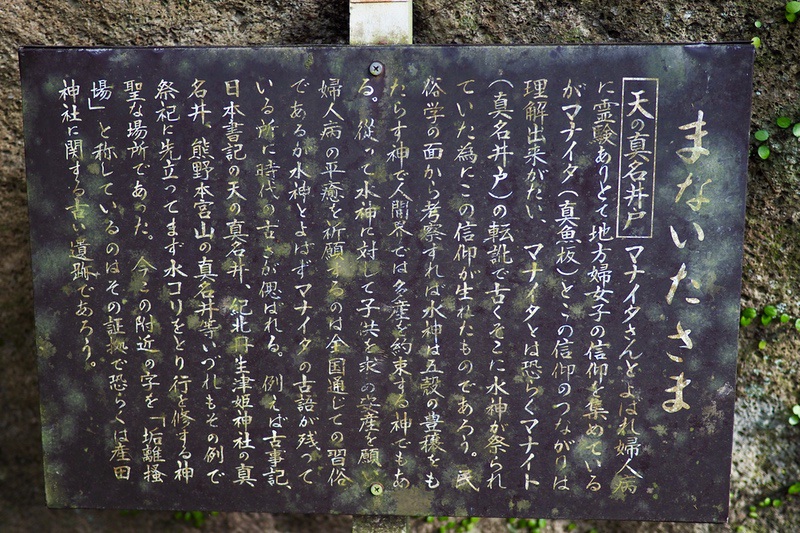 まないたさま
天の真名井戸 マナイタさんとよばれ婦人病
に霊験ありとて地方婦女子の信仰を集めている
がマナイタ(真魚板)とこの信仰のつながりは
理解出来がたい、マナイタとは恐らくマナイト
(真名井戸)の転訛で古くそこに水神が祭られ
ていた為にこの信仰が生れたものであろう。民
俗学の面から考察すれば水神は五穀の豊穣をも
たらす神で人間界では多産を約束する神でもあ
る。従って水神に対して子供を求め安産を願い
婦人病の平癒を祈願するのは全国通じての習俗
であるが水神とよばずマナイタの古語が残って
いる所に時代の古さが偲ばれる。例えば古事記、
日本書記の天の真名井、紀北丹生津姫神社の真
名井、熊野本宮山の真名井等いづれもその例で
祭祀に先立ってまず水コリをとり行を修する神
聖な場所であった。今この附近の字を「垢離掻
場」と称しているのはその証拠で恐らくは産田
神社に関する古い遺跡であろう。